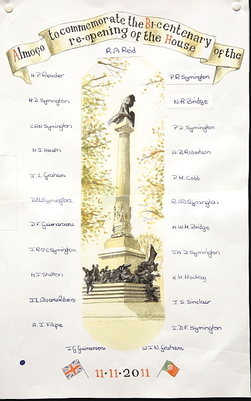 Almoço to commemorate the Bi-centenary of the
re-opening of the House
R.A. Reid
H.P. Reader
P.R. Symington
M.D. Symington
N.R. Bridge
C.A.D. Symington
P.D. Symington
N.J. Heath
A.B. Robertson
J.L. Graham
P.M. Cobb
D.F. Guimaraens
A.W.M. Bridge
J.R.O'C Symington
J.A.D. Symington
H.J. Shotton
E.M. Mackay
J.S. Sinclair
A.J. Filipe
I.D.F. Symington
J.G. Guimaraens
W.J.N. Graham
11·11·2011